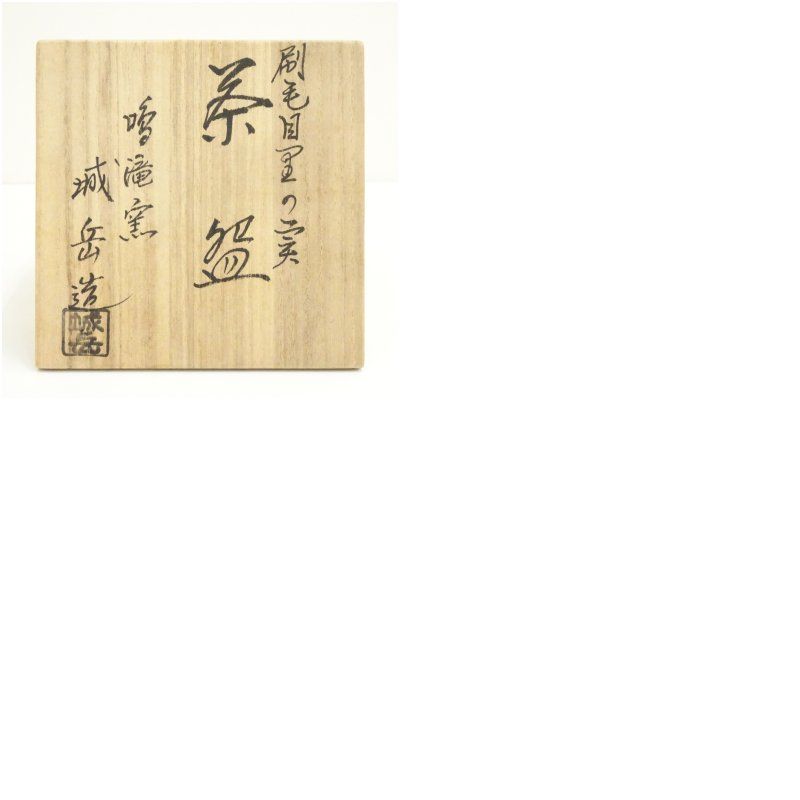 刷毛目里の実
茶盌
鳴滝窯
城岳造
城岳